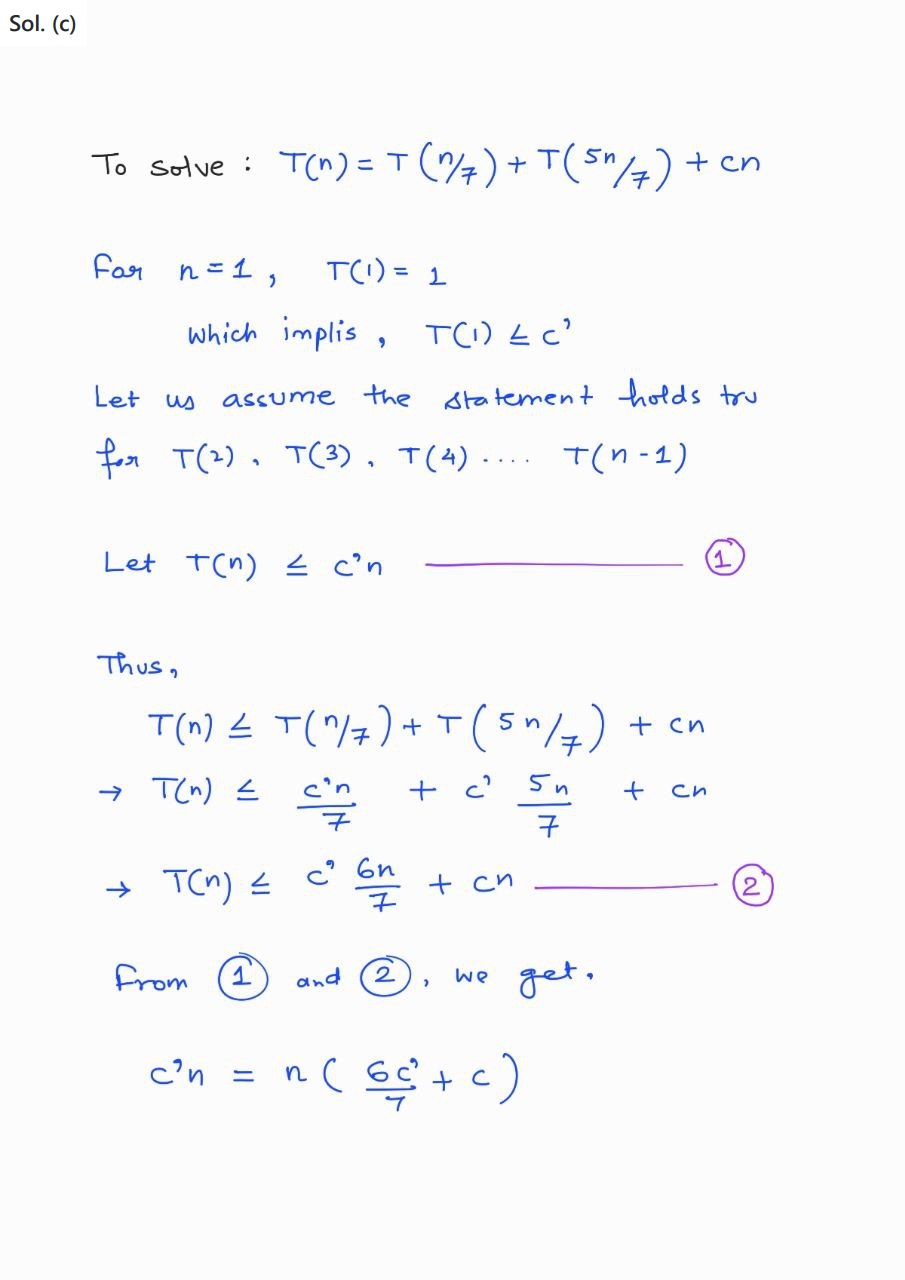 Sol. (c)
To solve : T(n) = T(n/7) + T(5n/7) + cn
For n = 1, T(1) = 1
which implis, T(1) ≤ c'
Let us assume the statement holds tru
for T(2), T(3), T(4) .... T(n-1)
Let T(n) ≤ c'n ——— ①
Thus,
T(n) ≤ T(n/7) + T(5n/7) + cn
→ T(n) ≤ c'n/7 + c' 5n/7 + cn
→ T(n) ≤ c' 6n/7 + cn ——— ②
From ① and ②, we get.
c'n = n(6c'/7 + c)